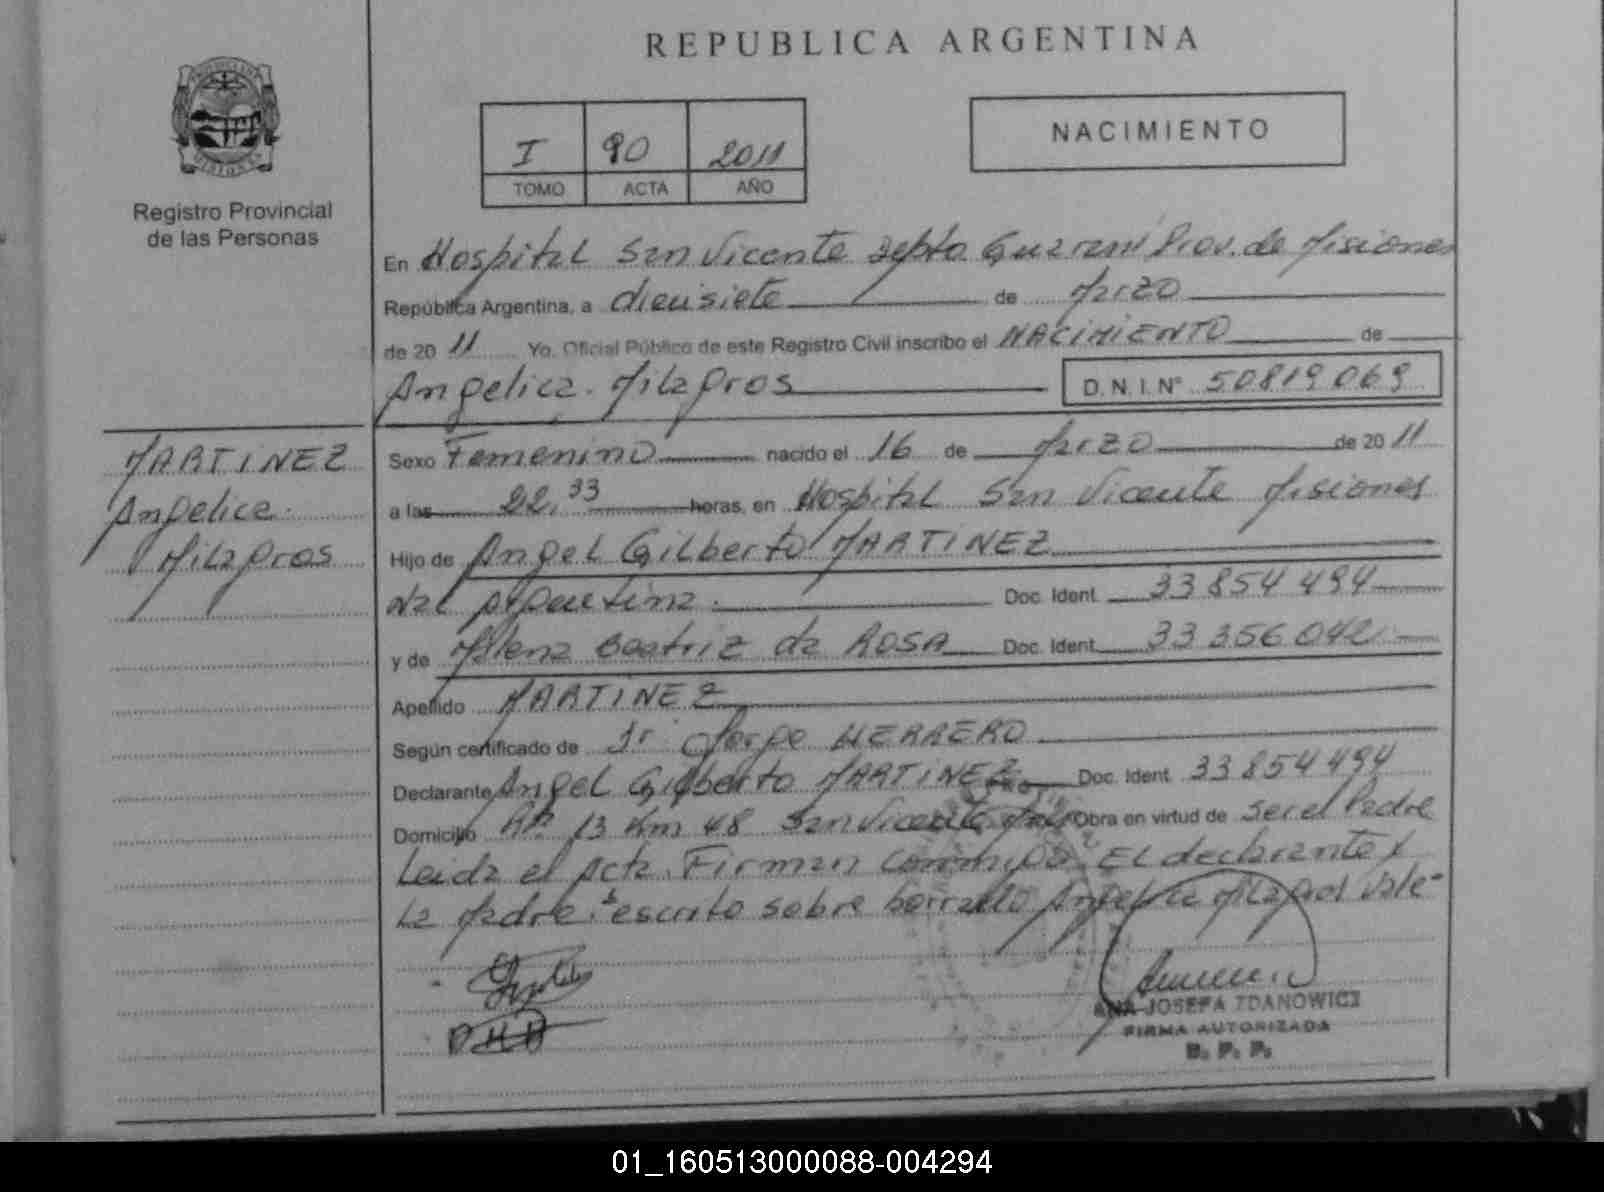 REPUBLICA ARGENTINA
PROVINCIA DE MISIONES
Registro Provincial
de las Personas
I 90 2011
TOMO ACTA AÑO
NACIMIENTO
En Hospital San Vicente Depto Guarani Prov. de Misiones
República Argentina, a diecisiete de Marzo
de 20 11 Yo. Oficial Público de este Registro Civil inscribo el NACIMIENTO de
Angelica. Milagros D.N.I.Nº 50819069
MARTINEZ
Angelica.
Milagros
Sexo Femenino nacido el 16 de Marzo de 20 11
a las 22,33 horas, en Hospital San Vicente Misiones
Hijo de Angel Gilberto MARTINEZ
Nac Argentina. Doc. Ident. 33854494
y de Beatriz da ROSA Doc. Ident. 33356042
Apellido MARTINEZ
Según certificado de Dr Jorge HERRERO
Declarante Angel Gilberto MARTINEZ Doc. Ident. 33854494
Domicilio 13 Km 48 San Vicente Obra en virtud de ser el Padre
Leida el Acta. Firman conmigo El declarante y
La Madre. escrito sobre borrado Angelica Milagros Vale-
ANA JOSEFA ZDANOWICZ
FIRMA AUTORIZADA
R. P. P.
01_160513000088-004294